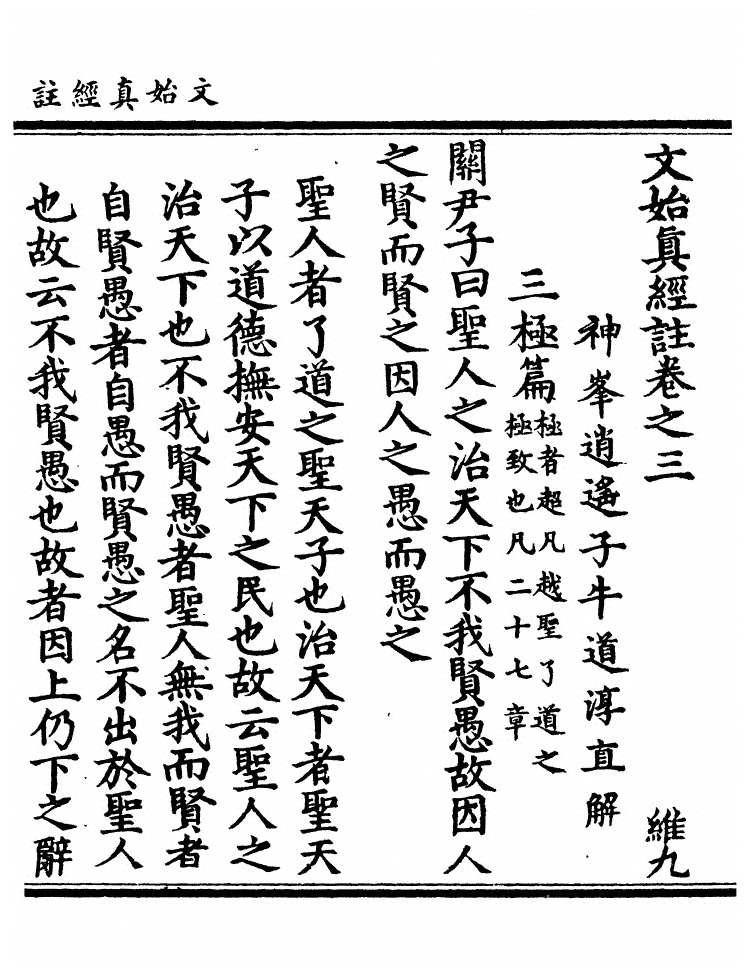 文始真經註
文始真經註卷之三 維九
神峯逍遙子牛道淳直解
三極篇極者超凡越聖了道之
極致也凡二十七章
關尹子曰聖人之治天下不我賢愚故因人
之賢而賢之因人之愚而愚之
聖人者了道之聖天子也治天下者聖天
子以道德撫安天下之民也故云聖人之
治天下也不我賢愚者聖人無我而賢者
自賢愚者自愚而賢愚之名不出於聖人
也故云不我賢愚也故者因上仍下之辭